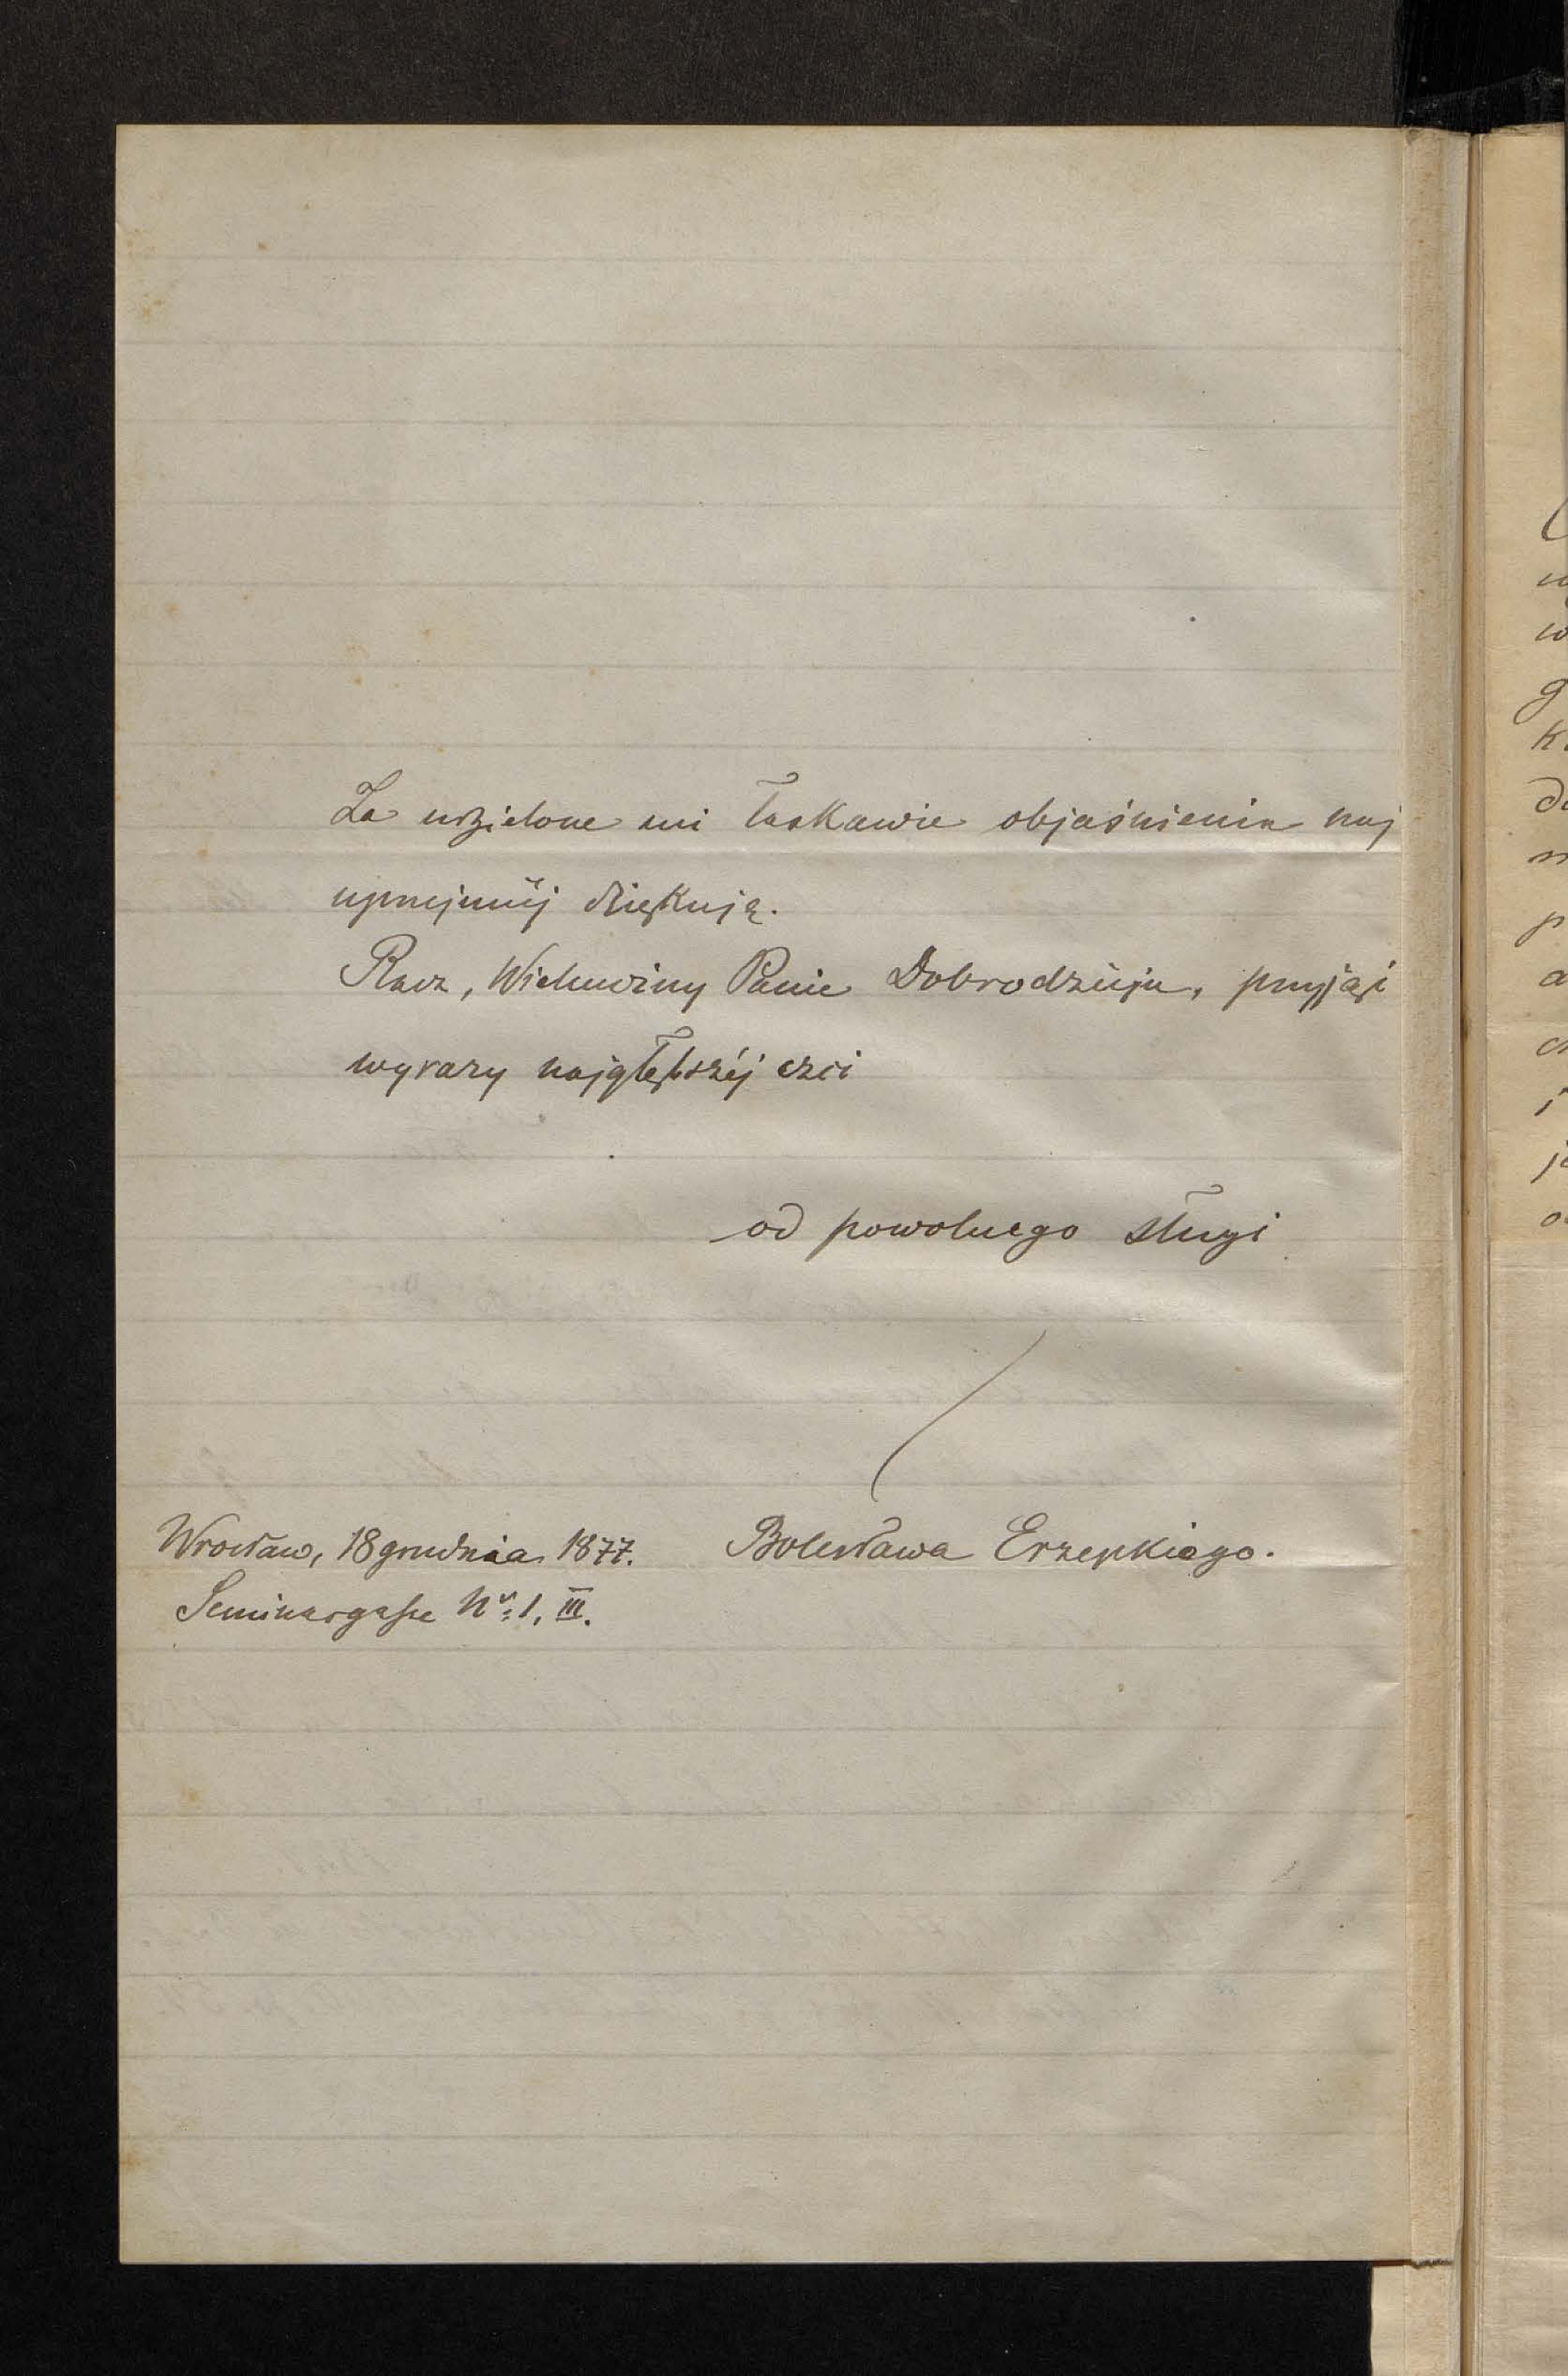 Za udzielone mi łaskawie objaśnienia naj
uprzejmiéj dziękuję.
Racz, Wielmożny Panie Dobrodzieju, przyjąć
wyrazy najgłębszéj czci
od powolnego sługi
Wrocław, 18 grudnia 1877. Bolesława Erzepkiego.
Seminargasse Nr: 1, III.